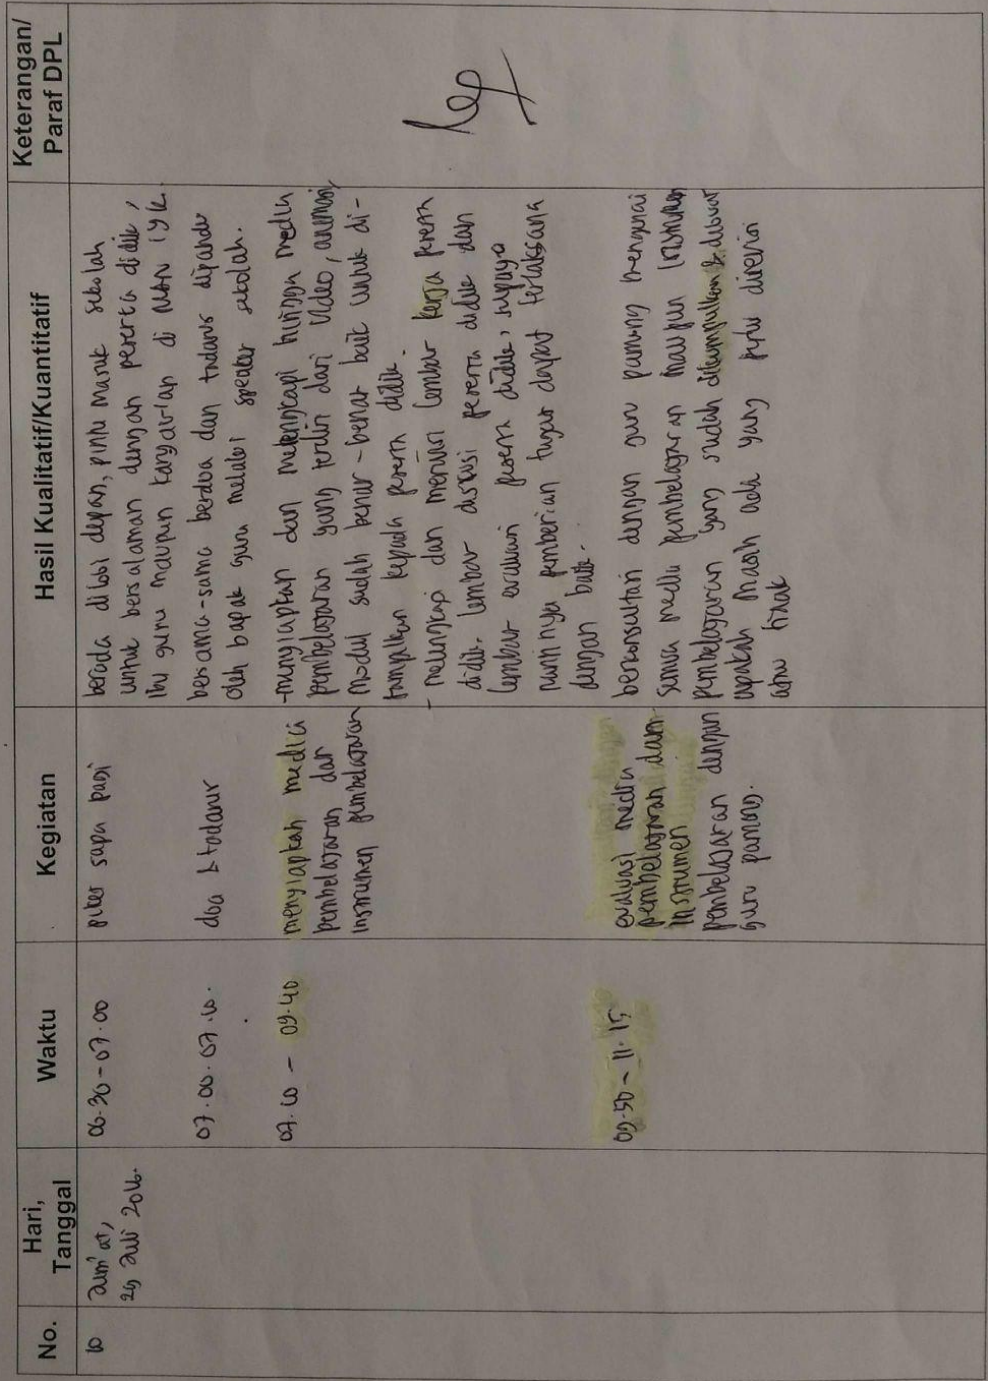 No.
Hari,
Tanggal
Waktu
Kegiatan
Hasil Kualitatif/Kuantitatif
Keterangan/
Paraf DPL
10
Jum'at,
29 Juli 2016.
06.30 - 07.00
piket sapa pagi
berada di lobi depan, pintu masuk sekolah
untuk bersalaman dengan peserta didik,
Ibu guru maupun karyawan di MAN 1 yk.
07.00. 07.10.
doa & tadarus
bersama-sama berdoa dan tadarus dipandu
oleh bapak guru melalui speaker sekolah.
07.10 - 09.40
menyiapkan media
pembelajaran dan
instrumen pembelajaran
- menyiapkan dan melengkapi hingga media
pembelajaran yang terdiri dari video, animasi,
modul sudah benar-benar baik untuk di-
tampilkan kepada peserta didik.
- melengkapi dan merevisi lembar kerja peserta
didik, lembar diskusi peserta didik dan
lembar evaluasi peserta didik, supaya
nantinya pemberian tugas dapat terlaksana
dengan baik.
09.50 - 11.15
evaluasi media
pembelajaran dan
instrumen
pembelajaran dengan
guru pamong.
berkonsultasi dengan guru pamong mengenai
semua media pembelajaran maupun instrumen
pembelajaran yang sudah dikumpulkan & dibuat
apakah masih ada yang perlu direvisi
atau tidak